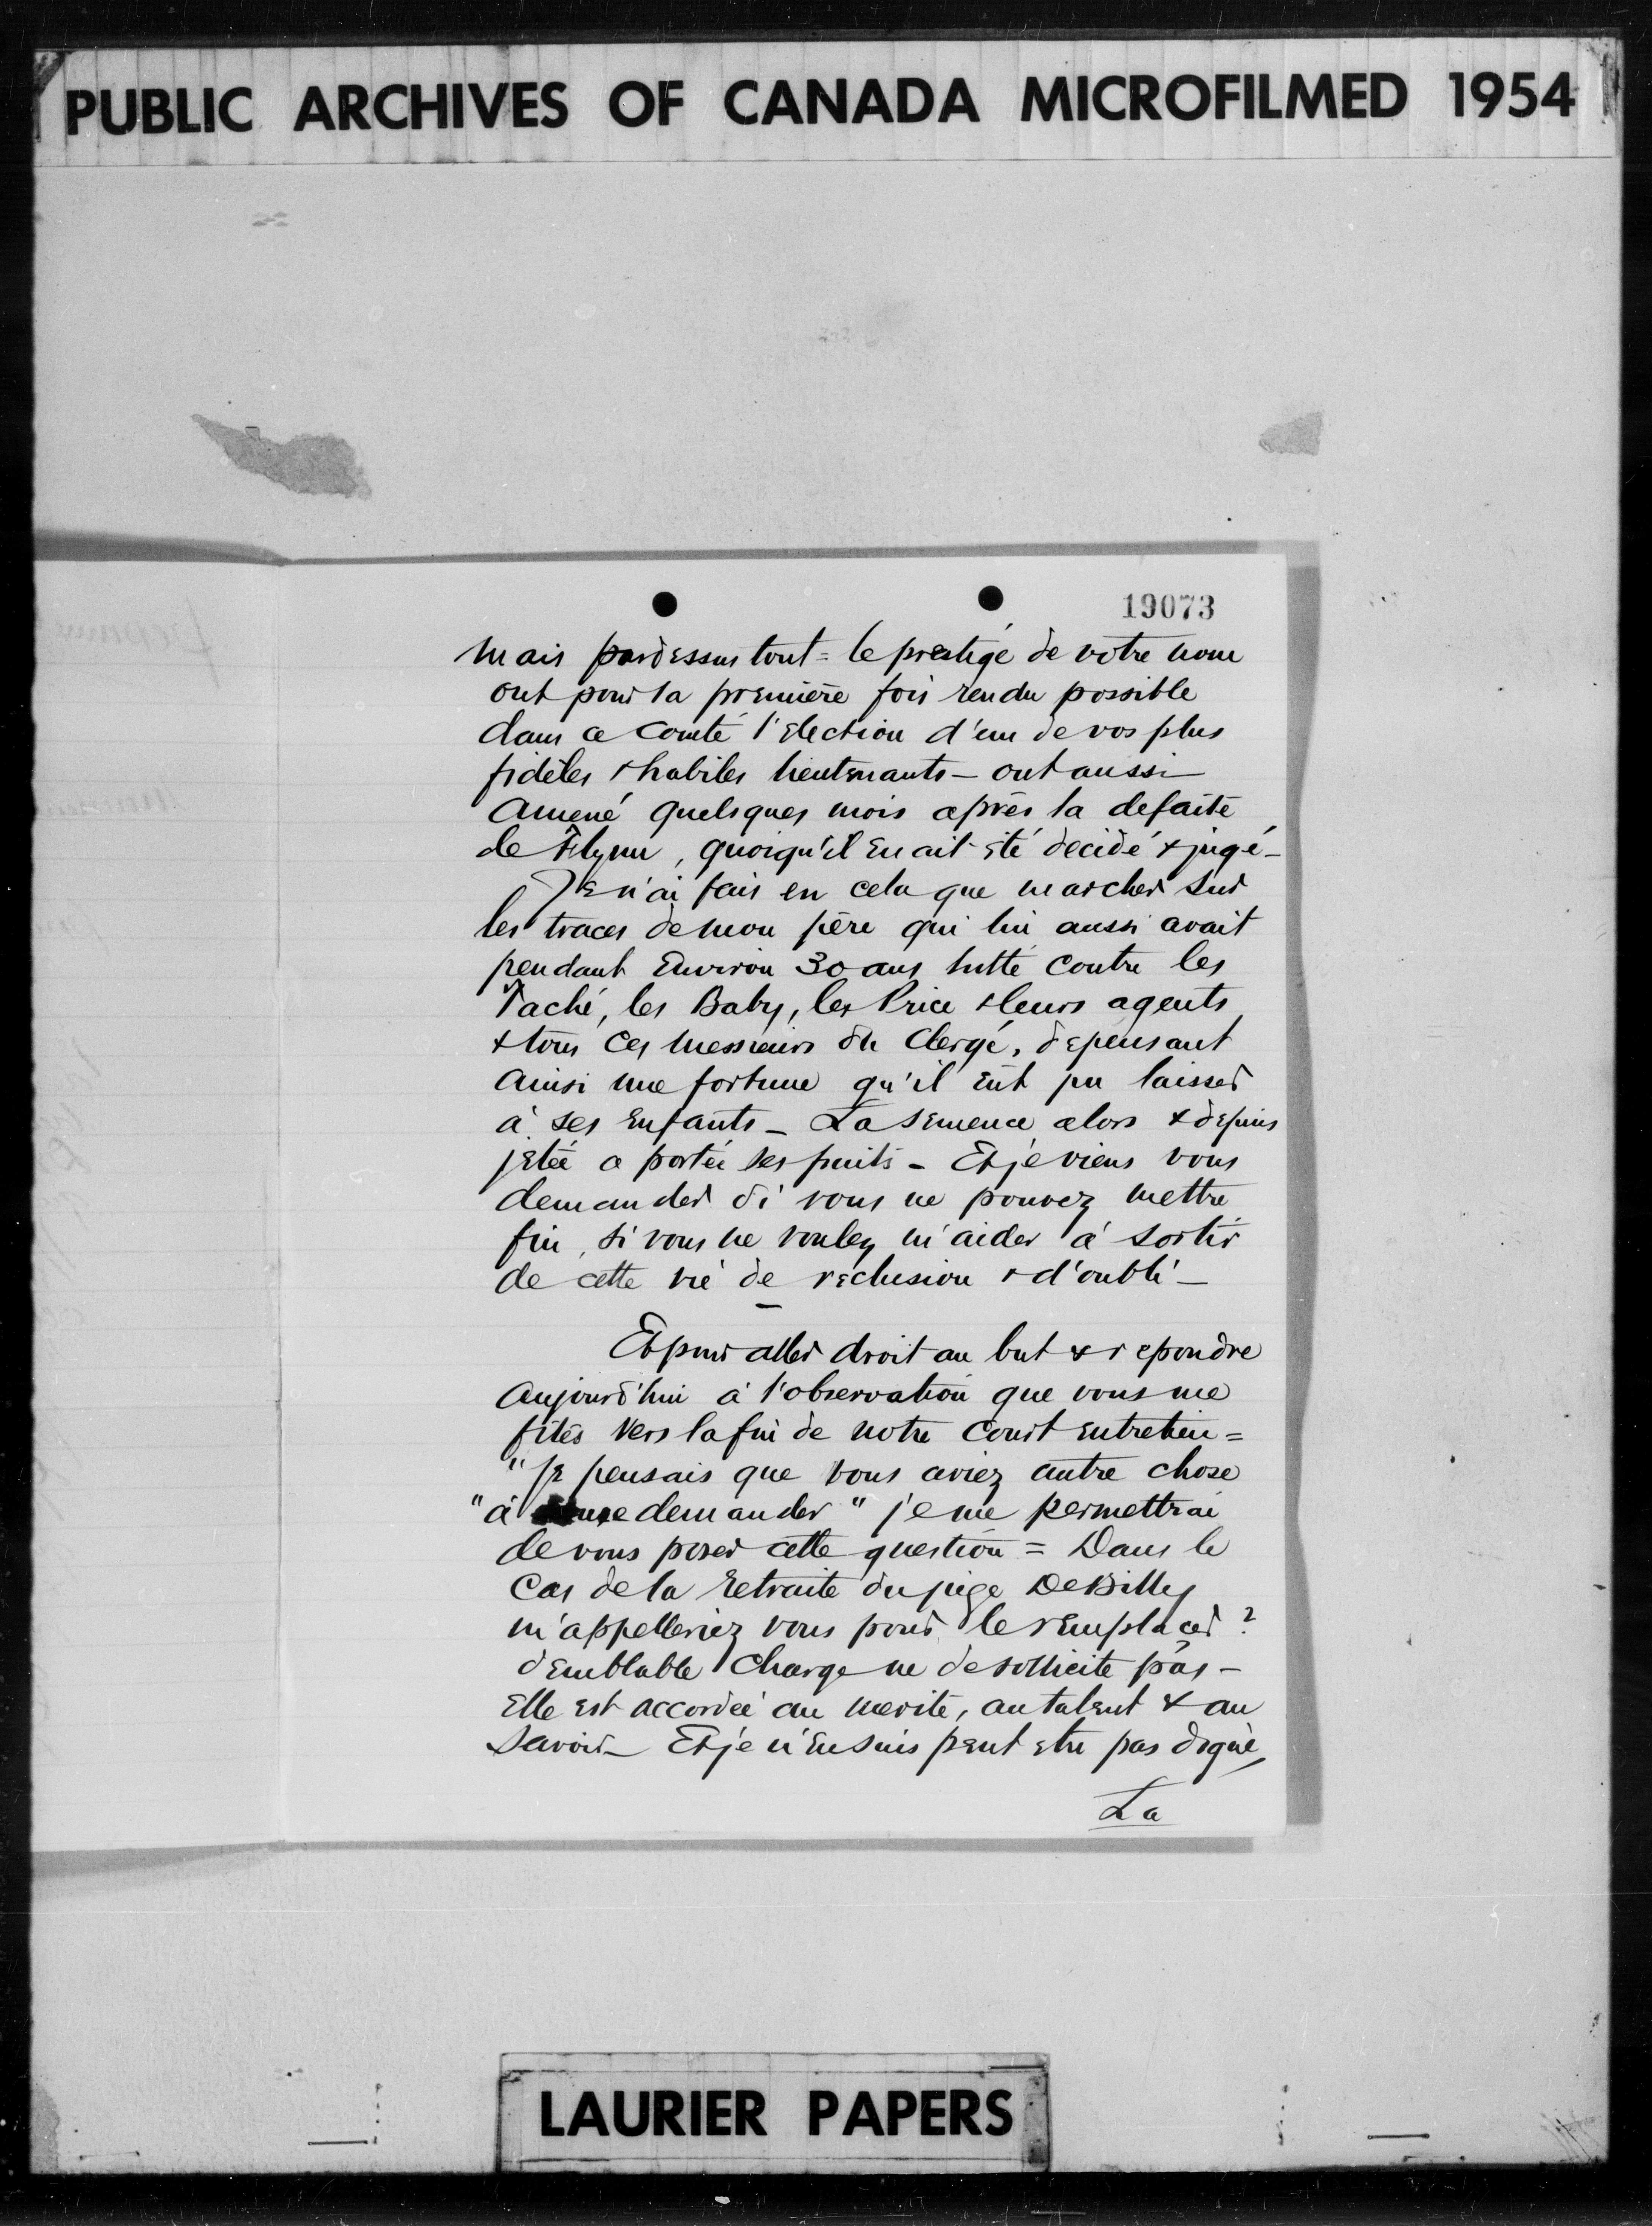 PUBLIC ARCHIVES OF CANADA MICROFILMED 1954
19073
Mais pardessus tout = le prestige de votre nom
ont pour la première fois rendu possible
dans ce Comté l'Election d'un de vos plus
fidèles & habiles lieutenants — ont aussi
Amené quelsques mois après la defaite
de Flynn, quoiqu'il en ait été decidé & jugé —
Je n'ai fais en cela que marcher sur
les traces de mon père qui lui aussi avait
pendant Environ 30 ans lutté contre les
Taché, les Baby, les Price & leurs agents
& tous Ces Messieurs du Clergé, depensant
Ainsi une fortune qu'il eût pu laisser
à ses Enfants — La Semence alors & depuis
jetée a portée ses fruits — Et je viens vous
demander si vous ne pouvez mettre
fin, si vous ne voulez m'aider à sortir
de cette vie de réclusion & d'oubli —
Et pour aller droit au but & repondre
Aujourd'hui à l'observation que vous me
fites vers la fin de notre Court Entretien =
"Je pensais que vous aviez autre chose
"à me demander" je me permettrai
de vous poser cette question = Dans le
Cas de la Retraite du juge DeBilly
m'appelleriez vous pour le remplacer ?
Semblable Charge ne se sollicite pas —
Elle est accordée au merite, au talent & au
Savoir — Et je n'En suis peut etre pas digne,
La
LAURIER PAPERS